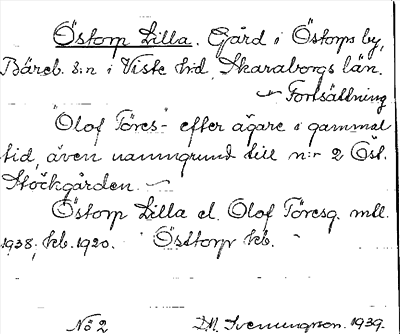 Östorp Lilla. Gård i Östorps by,
Bäreb. s:n i Viste hd. Skaraborgs län.
— Fortsättning
"Olof Töres-" efter ägare i gammal
tid, även namngrund till n:r 2 Öst.
Stöckgården. —
Östorp Lilla el. Olof Töresg. mtl.
1938; kb. 1920. Östtorp kb.
No 2
D.A. Svenungson. 1939.